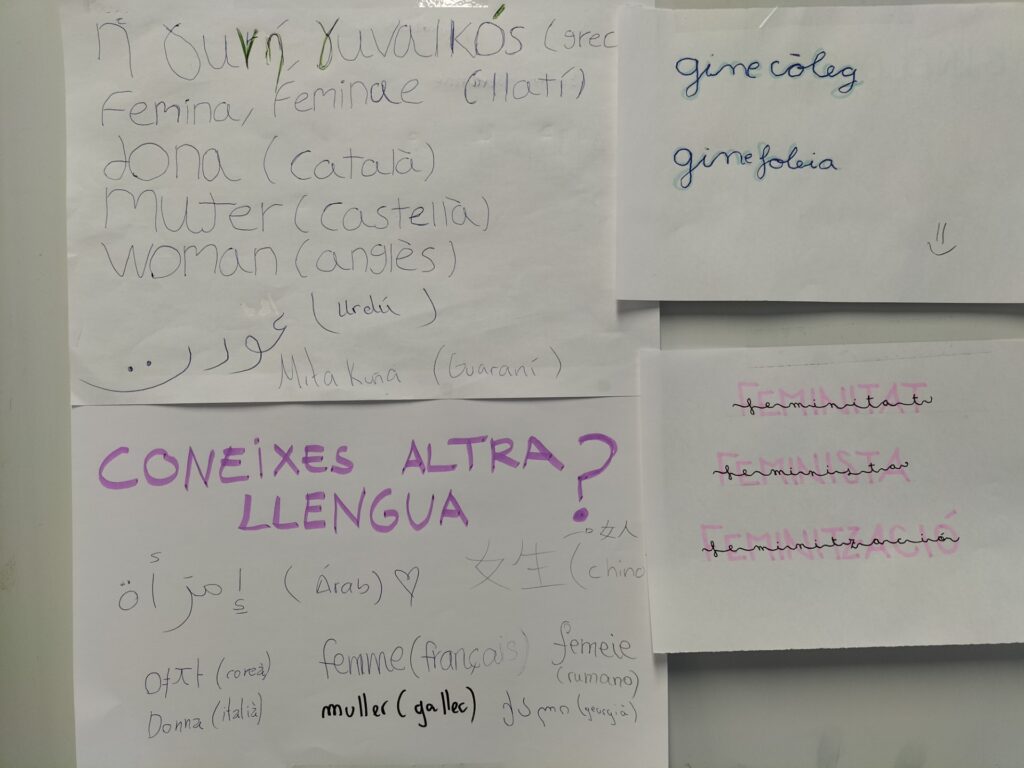 ἡ γυνή, γυναικός (grec
Femina, Feminae (llatí)
dona (català)
Mujer (castellà)
woman (anglès)
عورت (Urdú)
Mita Kuna (Guaraní)
CONEIXES ALTRA
LLENGUA ?
女人
إمرَأة (Árab) ♡ 女生 (chino
여자 (coreà) femme (français) femeie
(rumano)
Donna (italià) muller (gallec) ქალი (georgià)
ginecòleg
ginefoleia
FEMINITAT
feminitat
FEMINISTA
feminista
FEMINITZACIÓ
feminització